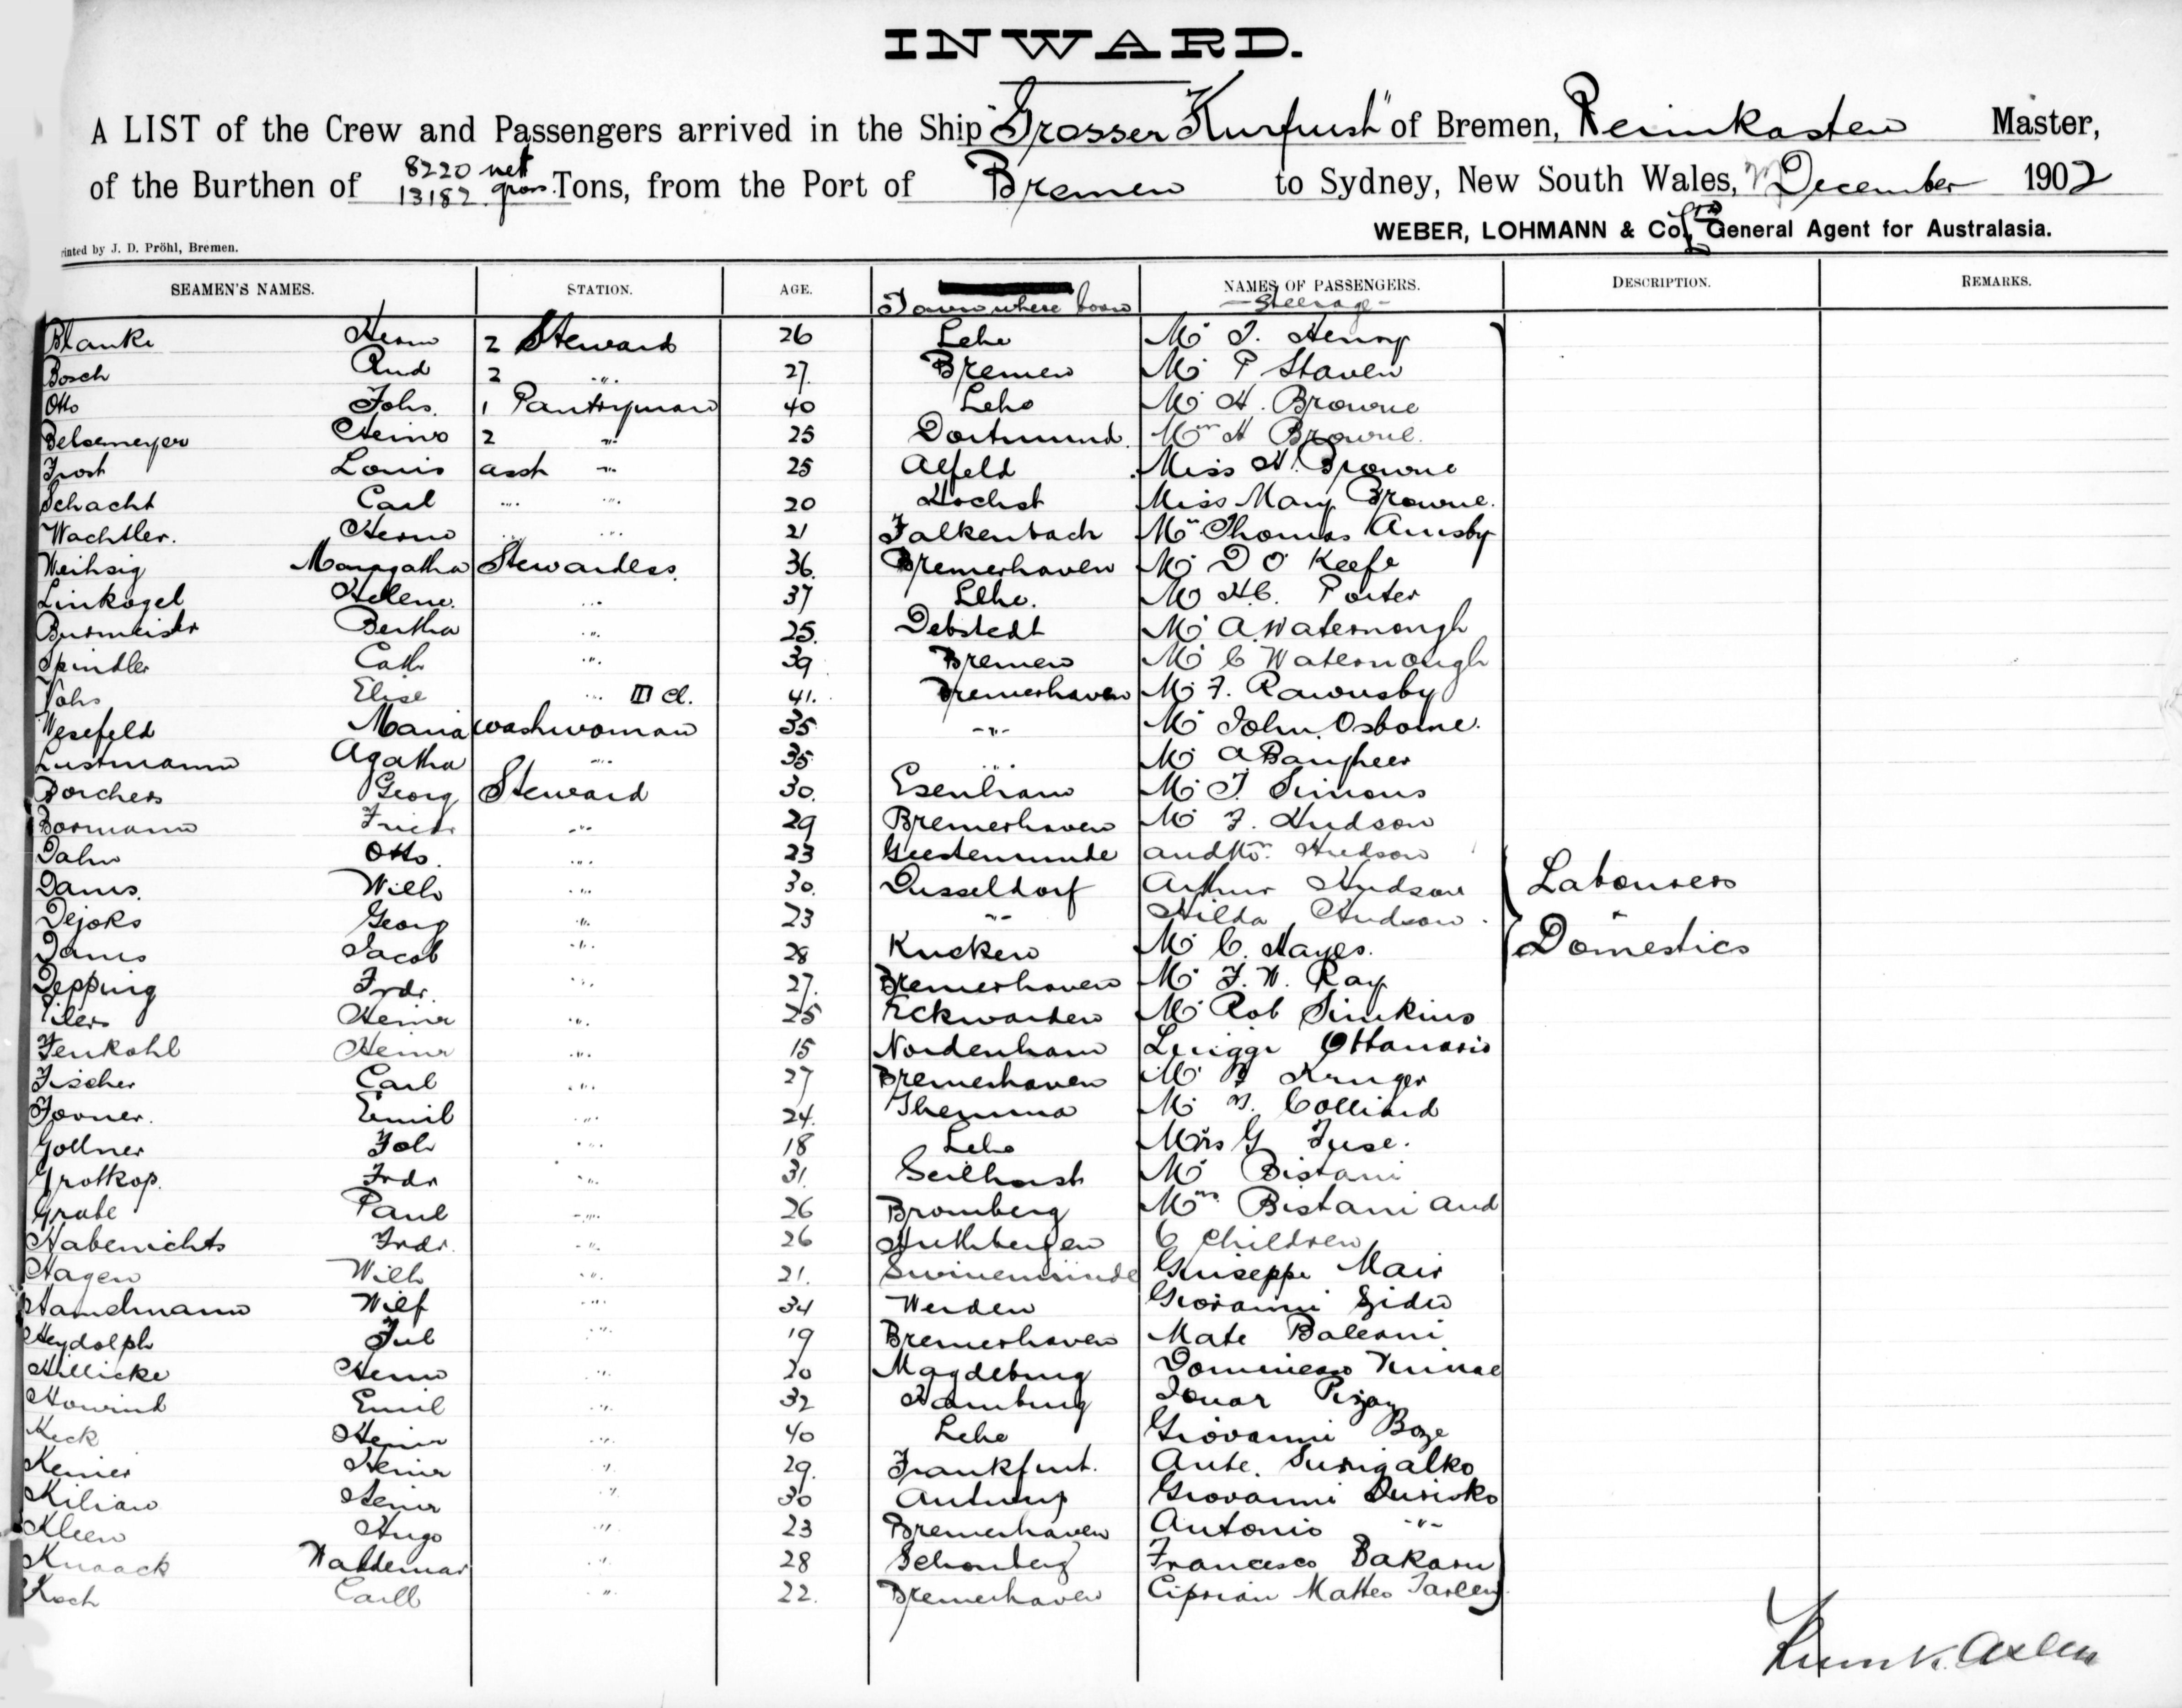 INWARD.
A LIST of the Crew and Passengers arrived in the Ship "Grosser Kurfurst" of Bremen, Reimkasten Master,
of the Burthen of 8220 nett 13182 gross Tons, from the Port of Bremen to Sydney, New South Wales, December 1902
WEBER, LOHMANN & Co., Ltd General Agent for Australasia.
rinted by J. D. Pröhl, Bremen.
SEAMEN'S NAMES. STATION. AGE. Town where born NAMES OF PASSENGERS. DESCRIPTION. REMARKS.
- Steerage -
Blanke Herm 2 Steward 26 Lehe Mr J. Henry
Bosch Rud 2 " 27. Bremen Mr P Staven
Otto Johs. 1 Pantryman 40 Lehe Mr H. Browne
Belsemeyer Heinr 2 " 25 Dortmund. Mrs H Browne.
Frost Louis asst " 25 Alfeld Miss H. Browne
Schacht Carl " " 20 Hochst Miss Mary Browne.
Wachtler. Herm " " 21 Falkenbach Mr Thomas Amsby
Weihsig Maragatha Stewardess. 36. Bremerhaven Mr D O' Keefe
Linkogel Helene. " 37 Lehe. Mr H.C. Porter
Burmeister Bertha " 25. Debstedt Mr A. Waternough
Spindler Cath " 39 Bremen Mr C Waternough
Vohs Elise " III cl. 41. Bremerhaven Mr F. Rawnsby
Wesefeld Maria washwoman 35 " Mr John Osborne.
Lustmann Agatha " 35 " Mr A
Borchers Georg Steward 30. Esenham Mr J. Simons
Bormann Friedr " 29 Bremerhaven Mr F. Hudson
Dahn Otto. " 23 Geestemunde and Mrs Hudson
Danis. Wilh " 30. Dusseldorf Arthur Hudson Labourers
Dejoks Georg " 23 " Hilda Hudson
Danis Jacob " 28 Kucken Mr C. Hayes. Domestics
Depping Frdr. " 27. Bremerhaven Mr F. W. Ray
Eilers Heinr " 25 Eckwarden Mr Rob Simkins
Fenkohl Heinr " 15 Nordenham Luiggi Ottanasio
Fischer Carl " 27 Bremerhaven Mr Kruger
Forner. Emil " 24. Mr Colliard
Gollner Joh " 18 Lehe Mrs G Fuse.
Grotkop. Frdr " 31. Seilhorst Mr Bistani
Grube Paul " 26 Bromberg Mrs Bistani and
Habenichts Frdr. " 26 Huthbergen 6 children
Hagen Wilh " 21. Swinemünde Guiseppe Mair
Handmann Wilh " 34 Werden Giovanni
Heydolph Jul " 19 Bremerhaven Mate Baleani
Hillicke Herm " 20 Magdeburg
Howind Emil " 32 Hamburg
Keck Heinr " 40 Lehe Giovanni Boze
Kenier Heinr " 29. Frankfurt. Ante. Surigalko
Kilian Heinr " 30 Antwerp Giovanni
Kleen Hugo " 23 Bremerhaven Antonio "
Knaack Waldemar " 28 Schonberg Francesco Bakaru
Koch Carll " 22. Bremerhaven Ciprian Matteo